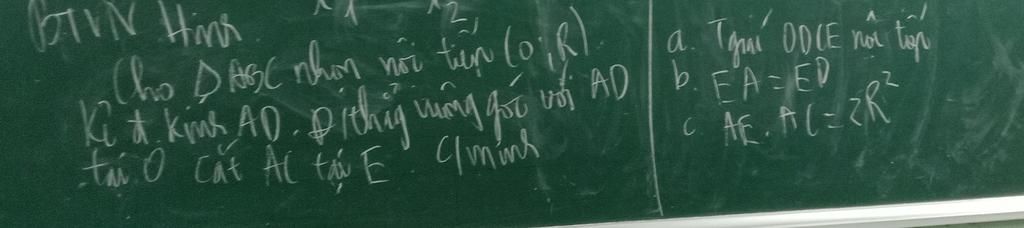 BTVN Hình
x₁ x₂
Cho Δ ABC nhọn nội tiếp (O;R).
Kẻ đ. kính AD. Đ/thẳg vuông góc với AD
tại O cắt AC tại E C/minh
a. Tgiác ODCE nội tiếp
b. EA = ED
c. AE. AC = 2R²